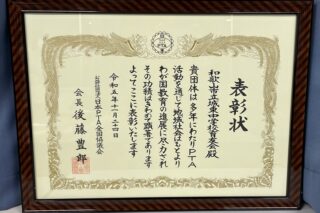 表彰状
和歌山市立城東中学校育友会殿
貴団体は多年にわたりPTA
活動を通じて地域社会はもとより
わが国教育の進展に尽力され
その功績はきわめて顕著であります
よってここに表彰いたします
令和五年十一月二十四日
公益社団法人日本PTA全国協議会
会長 後藤豊郎